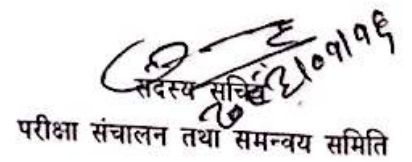 सदस्य सचिव
परीक्षा संचालन तथा समन्वय समिति